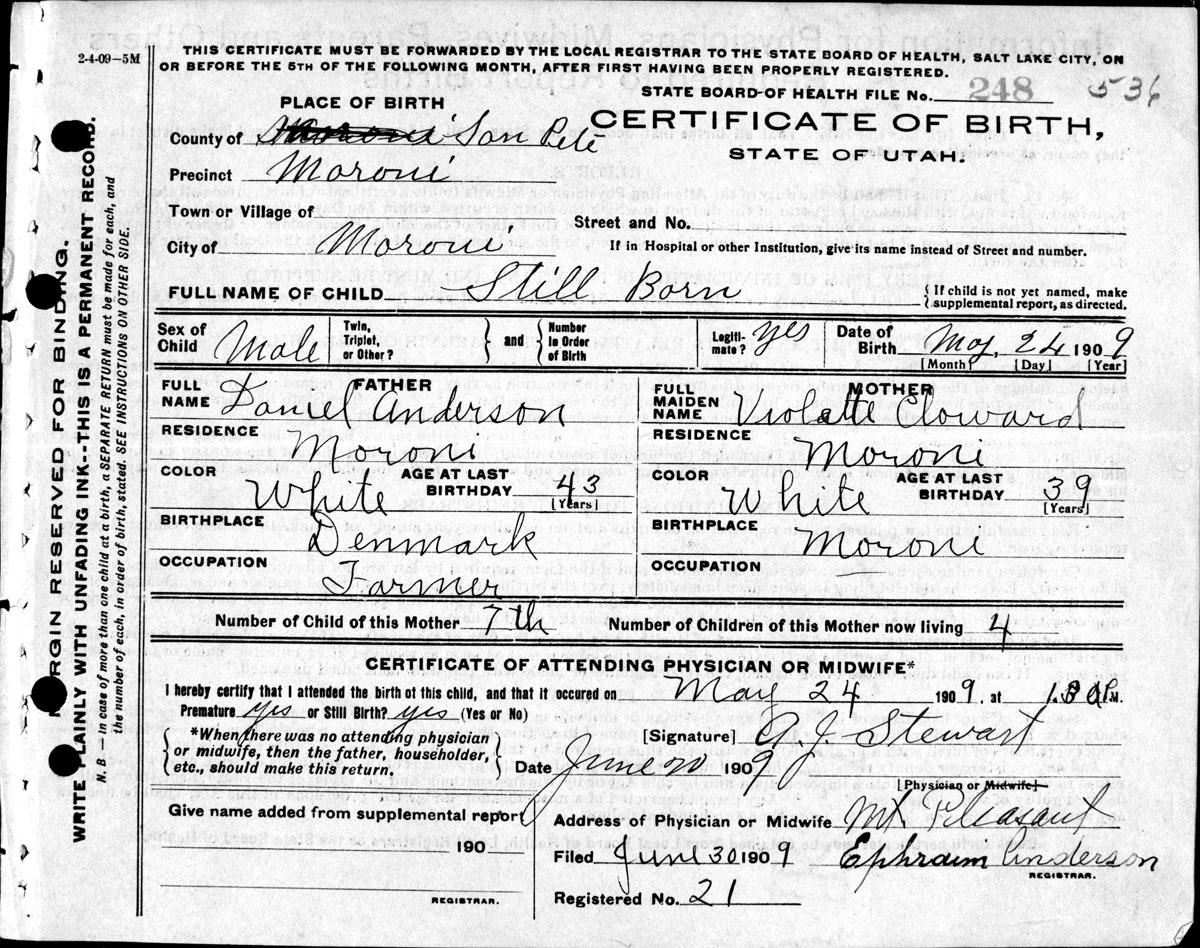 2-4-09—5M
THIS CERTIFICATE MUST BE FORWARDED BY THE LOCAL REGISTRAR TO THE STATE BOARD OF HEALTH, SALT LAKE CITY, ON
OR BEFORE THE 5TH OF THE FOLLOWING MONTH, AFTER FIRST HAVING BEEN PROPERLY REGISTERED.
STATE BOARD OF HEALTH FILE No. 248 536
PLACE OF BIRTH
CERTIFICATE OF BIRTH,
STATE OF UTAH.
County of San Pete
Precinct Moroni
Town or Village of
Street and No.
City of Moroni
If in Hospital or other Institution, give its name instead of Street and number.
FULL NAME OF CHILD Still Born
{ If child is not yet named, make supplemental report, as directed.
Sex of Child Male Twin, Triplet, or Other? } and { Number in Order of Birth Legitimate? yes Date of Birth May, 24 1909
[Month] [Day] [Year]
FATHER
FULL NAME Daniel Anderson
RESIDENCE Moroni
COLOR White AGE AT LAST BIRTHDAY 43
[Years]
BIRTHPLACE Denmark
OCCUPATION Farmer
MOTHER
FULL MAIDEN NAME Violate Cloward
RESIDENCE Moroni
COLOR White AGE AT LAST BIRTHDAY 39
[Years]
BIRTHPLACE Moroni
OCCUPATION —
Number of Child of this Mother 7th Number of Children of this Mother now living 4
CERTIFICATE OF ATTENDING PHYSICIAN OR MIDWIFE*
I hereby certify that I attended the birth of this child, and that it occured on May 24 1909, at P.M.
Premature yes or Still Birth? yes (Yes or No)
{ *When there was no attending physician
or midwife, then the father, householder,
etc., should make this return. }
[Signature] G. J. Stewart
Date June 20 1909
[Physician or Midwife]
Give name added from supplemental report
190
REGISTRAR.
Address of Physician or Midwife Mt. Pleasant
Filed June 30 1909 Ephraim Anderson
REGISTRAR.
Registered No. 21
MARGIN RESERVED FOR BINDING.
WRITE PLAINLY WITH UNFADING INK--THIS IS A PERMANENT RECORD.
N. B.—In case of more than one child at a birth, a SEPARATE RETURN must be made for each, and
the number of each, in order of birth, stated. SEE INSTRUCTIONS ON OTHER SIDE.